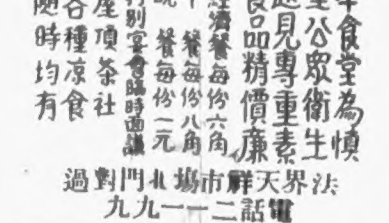 本食堂為慎
重公眾衛生
起見專重素
食品精價廉
經濟餐每份六角
午餐每份八角
晚餐每份一元
特別宴會臨時面議
屋頂茶社
各種凉食
隨時均有
法界天祥市場北門對過
電話二一一九九